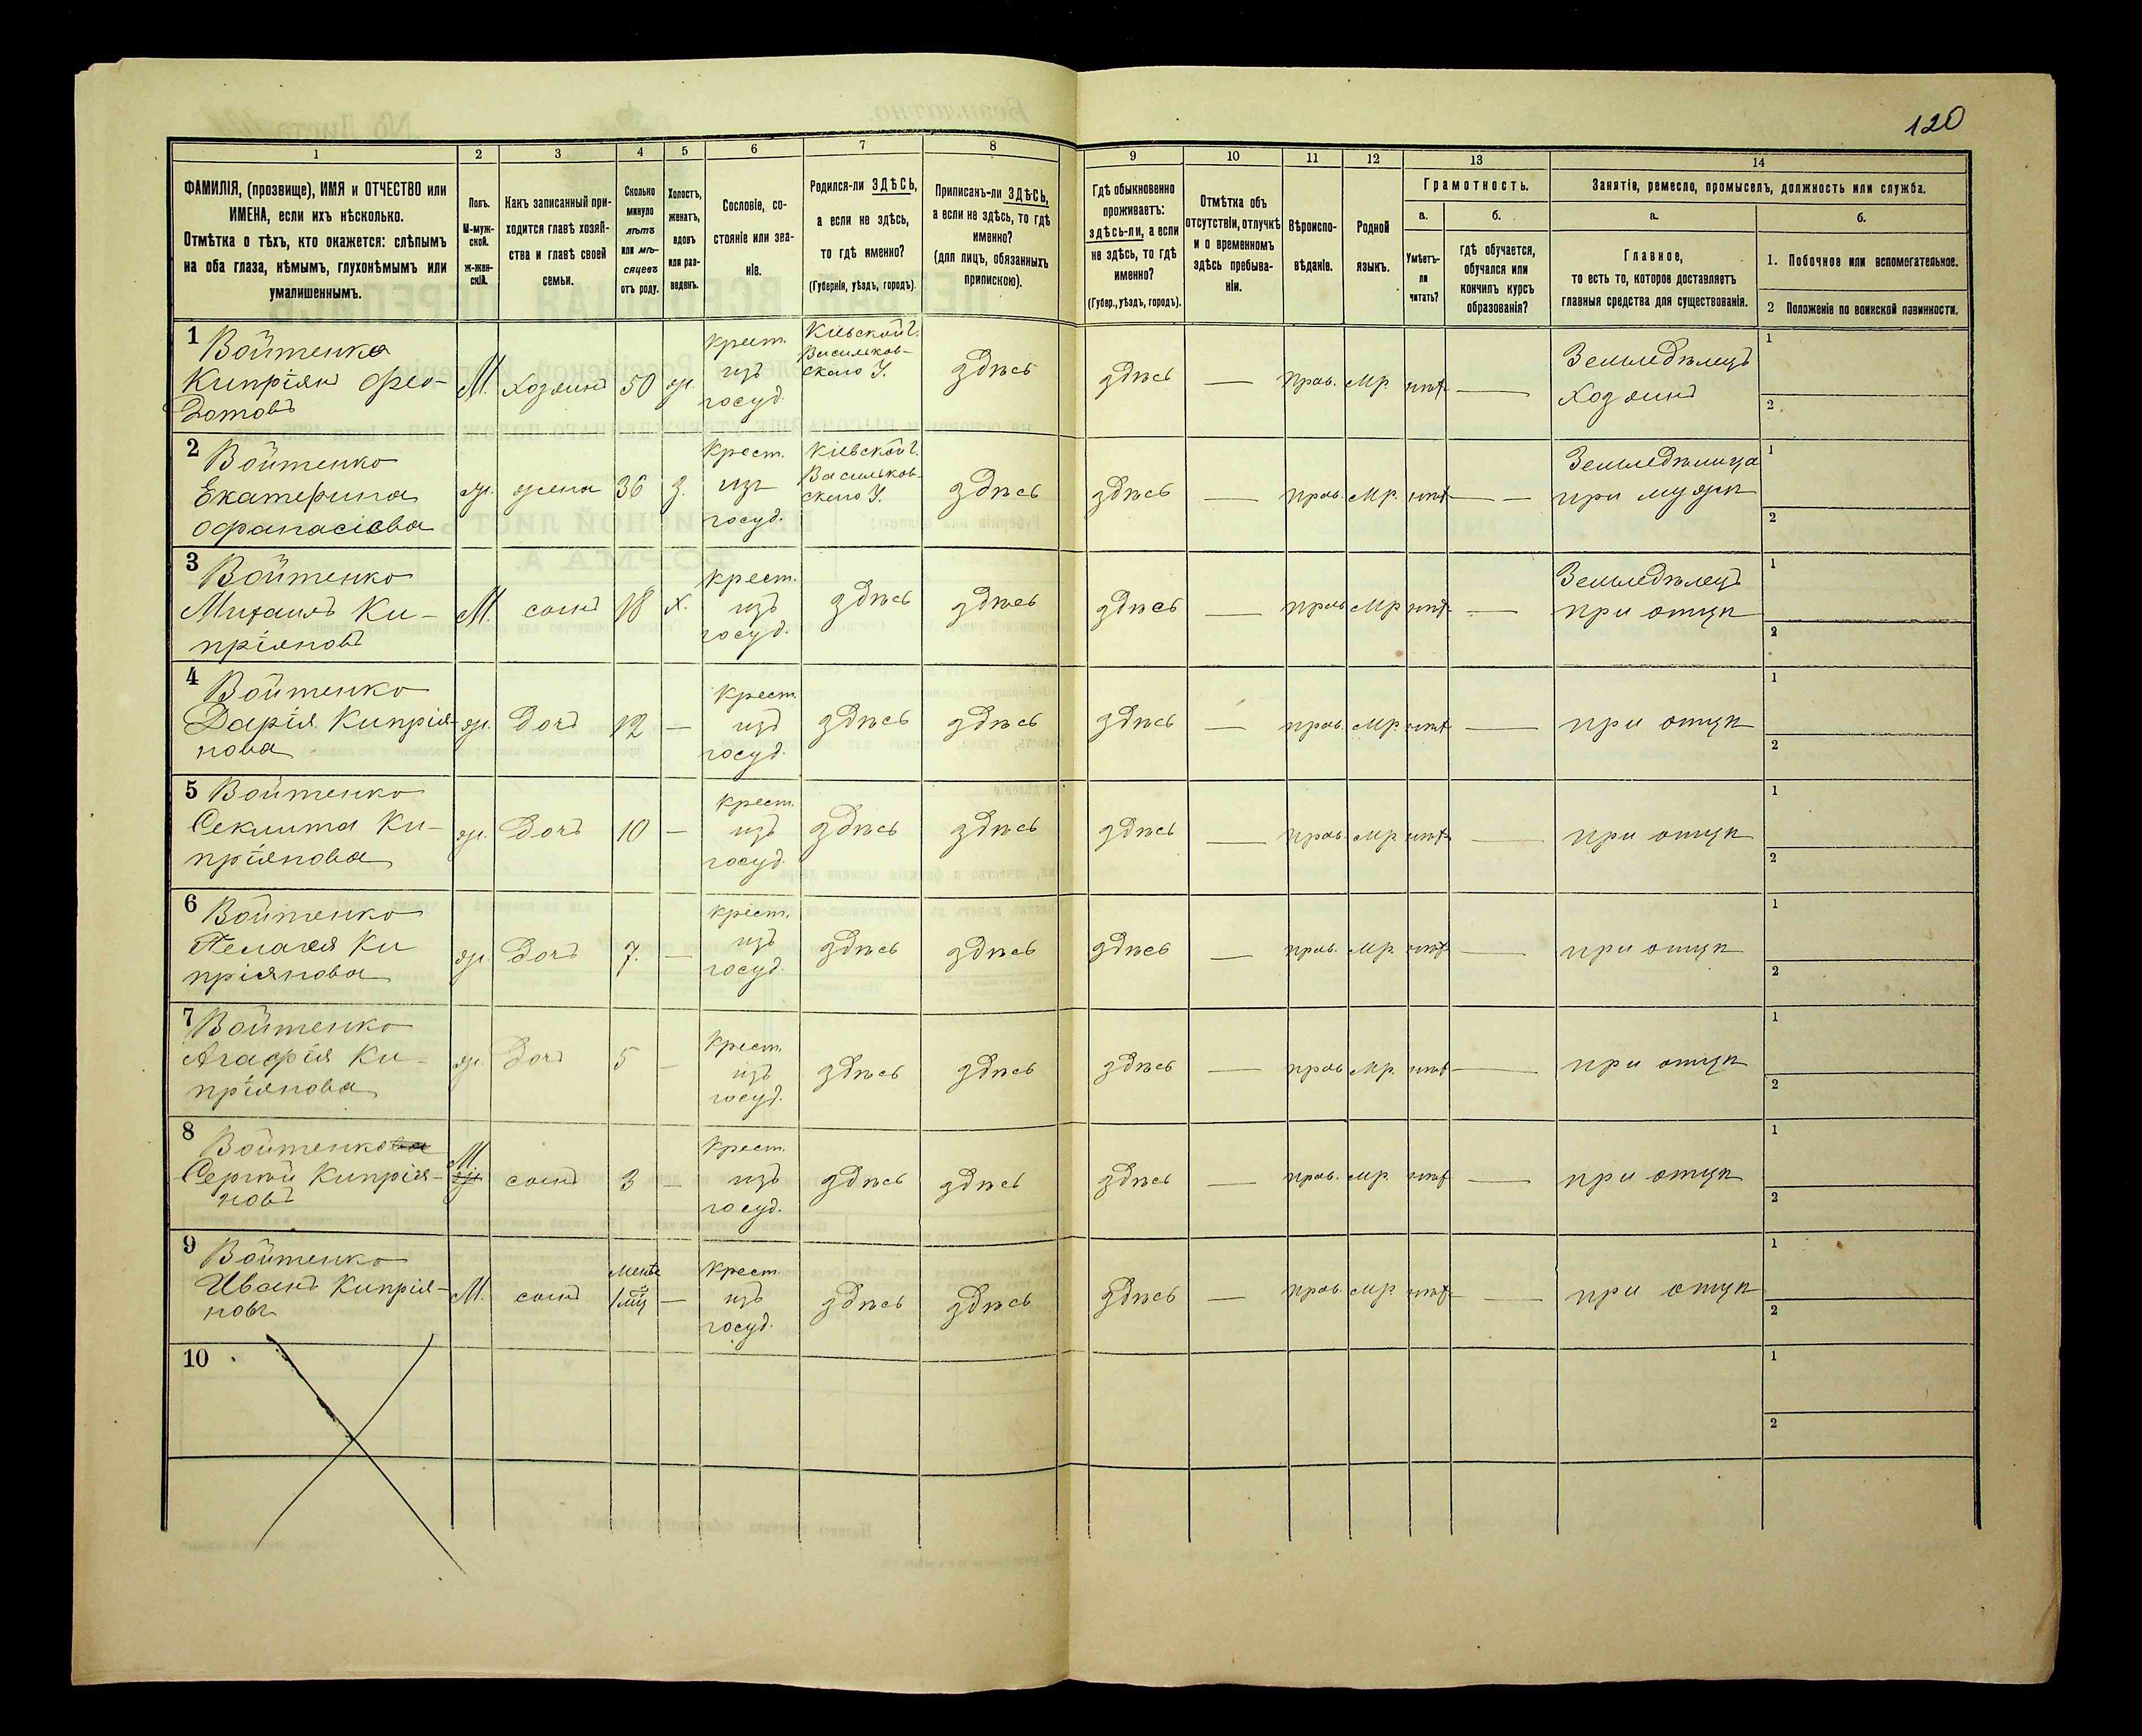 120
1 2 3 4 5 6 7 8 9 10 11 12 13 14
ФАМИЛІЯ, (прозвище), ИМЯ и ОТЧЕСТВО или
ИМЕНА, если ихъ нѣсколько.
Отмѣтка о тѣхъ, кто окажется: слѣпымъ
на оба глаза, нѣмымъ, глухонѣмымъ или
умалишеннымъ.
Полъ.
М-муж-
ской.
ж-жен-
скій.
Какъ записанный при-
ходится главѣ хозяй-
ства и главѣ своей
семьи.
Сколько
минуло
лѣтъ
или мѣ-
сяцевъ
отъ роду.
Холостъ,
женатъ,
вдовъ
или раз-
веденъ.
Сословіе, со-
стояніе или зва-
ніе.
Родился-ли ЗДѢСЬ,
а если не здѣсь,
то гдѣ именно?
(Губернія, уѣздъ, городъ).
Приписанъ-ли ЗДѢСЬ,
а если не здѣсь, то гдѣ
именно?
(для лицъ, обязанныхъ
припискою).
Гдѣ обыкновенно
проживаетъ:
здѣсь-ли, а если
не здѣсь, то гдѣ
именно?
(Губер., уѣздъ, городъ).
Отмѣтка объ
отсутствіи, отлучкѣ
и о временномъ
здѣсь пребыва-
ніи.
Вѣроиспо-
вѣданіе.
Родной
языкъ.
Грамотность.
а.
Умѣетъ-
ли
читать?
б.
гдѣ обучается,
обучался или
кончилъ курсъ
образованія?
Занятіе, ремесло, промыселъ, должность или служба.
а.
Главное,
то есть то, которое доставляетъ
главныя средства для существованія.
б.
1. Побочное или вспомогательное.
2 Положеніе по воинской повинности.
1 Войтенко
Кипріянъ Фео-
дотовъ
М. Хозяинъ 50 ж.
крест.
изъ
госуд.
Кіевской г.
Васильков-
скаго У.
здѣсь здѣсь — прав. Мр. нѣт —
Земледѣлецъ
Хозяинъ
1
2
2 Войтенко
Екатерина
Офанасіева
ж. жена 36 з.
Крест.
изъ
госуд.
Кіевской г.
Васильков-
скаго У.
здѣсь здѣсь — прав. Мр. нѣт —
Земледѣлица
при мужѣ
1
2
3 Войтенко
Михаилъ Ки-
пріяновъ
М. сынъ 18 х.
крест.
изъ
госуд.
здѣсь здѣсь здѣсь — прав Мр нѣт —
Земледѣлецъ
при отцѣ
1
2
4 Войтенко
Дарія Кипрія-
нова
ж. Дочъ 12 —
крест.
изъ
госуд.
здѣсь здѣсь здѣсь — прав. Мр. нѣт — при отцѣ
1
2
5 Войтенко
Секлита Ки-
пріянова
ж. Дочъ 10 —
крест.
изъ
госуд.
здѣсь здѣсь здѣсь — прав. Мр. нѣт — при отцѣ
1
2
6 Войтенко
Пелагея Ки
пріянова
ж. Дочъ 7. —
крест.
изъ
госуд.
здѣсь здѣсь здѣсь — прав. Мр. нѣт — при отцѣ
1
2
7 Войтенко
Агафія Ки-
пріянова
ж. Дочъ 5 —
крест.
изъ
госуд.
здѣсь здѣсь здѣсь — прав Мр. нѣт — при отцѣ
1
2
8 Войтенко
Сергѣй Кипрія-
новъ
М. сынъ 3 —
крест.
изъ
госуд.
здѣсь здѣсь здѣсь — прав. Мр. нѣт — при отцѣ
1
2
9 Войтенко
Иванъ Кипрія-
новъ
М. сынъ
менѣе
1 мц
—
крест.
изъ
госуд.
здѣсь здѣсь здѣсь — прав. Мр. нѣт — при отцѣ
1
2
10
1
2